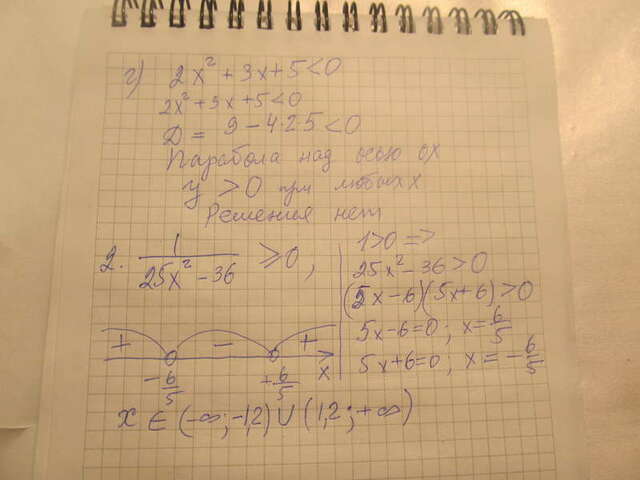 г) 2x² + 3x + 5 < 0
2x² + 3x + 5 < 0
D = 9 - 4·2·5 < 0
Парабола над осью ох
y > 0 при любых x
Решения нет
2. 1/(25x² - 36) ≥ 0,
1 > 0 =>
25x² - 36 > 0
(5x - 6)(5x + 6) > 0
5x - 6 = 0; x = 6/5
5x + 6 = 0; x = -6/5
+ - +
-6/5 +6/5 x
x ∈ (-∞; -1,2) ∪ (1,2; +∞)